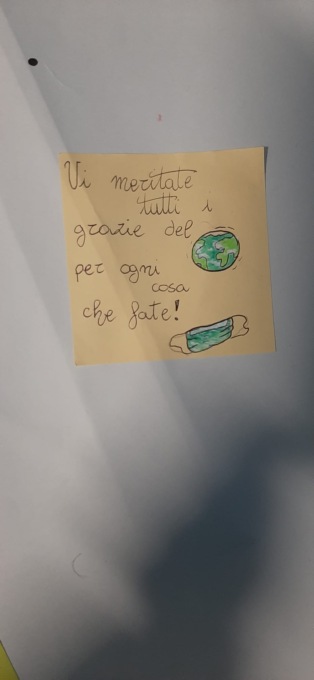 Vi meritate
tutti i
grazie del
per ogni
cosa
che fate!